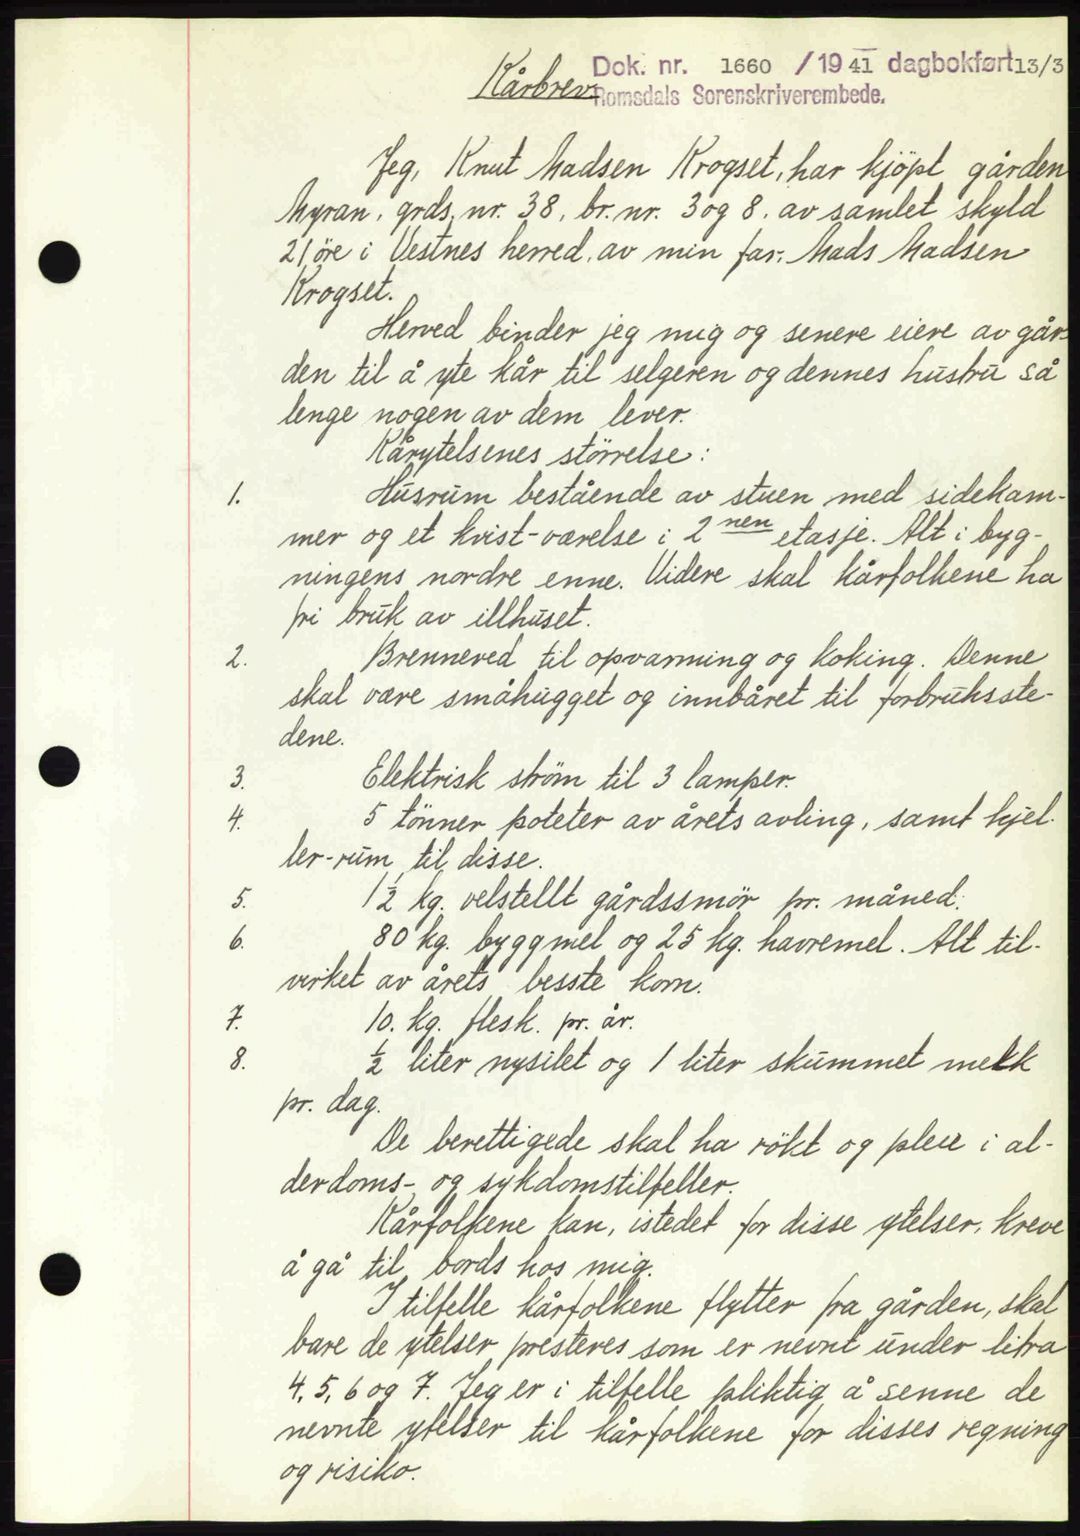 Kårbrev. Dok. nr. 1660 / 19 41 dagbokført 13/3
Romsdals Sorenskriverembede.
Jeg, Knut Madsen Krogset, har kjöpt gården
Myran, grds. nr. 38, br. nr. 3 og 8, av samlet skyld
21 öre i Vestnes herred, av min far: Mads Madsen
Krogset.
Herved binder jeg mig og senere eiere av går-
den til å yte kår til selgeren og dennes hustru så
lenge nogen av dem lever.
Kårytelsenes störrelse:
1. Husrum bestående av stuen med sidekam-
mer og et kvist-værelse i 2 nen etasje. Alt i byg-
ningens nordre enne. Videre skal kårfolkene ha
fri bruk av illhuset.
2. Brenneved til opvarming og koking. Denne
skal være småhugget og innbåret til forbruksste-
dene.
3. Elektrisk ström til 3 lamper.
4. 5 tönner poteter av årets avling, samt kjel-
ler-rum til disse.
5. 1½ kg. velstellt gårdssmör pr. måned.
6. 80 kg. byggmel og 25 kg. havremel. Alt til-
virket av årets besste korn.
7. 10. kg. flesk. pr. år.
8. ½ liter nysilet og 1 liter skummet melk
pr. dag.
De berettigede skal ha rökt og pleie i al-
derdoms- og sykdomstilfeller.
Kårfolkene kan, istedet for disse ytelser, kreve
å gå til bords hos mig.
I tilfelle kårfolkene flytter fra gården, skal
bare de ytelser presteres som er nevnt under litra
4, 5, 6 og 7. Jeg er i tilfelle pliktig å senne de
nevnte ytelser til kårfolkene for disses regning
og risiko.